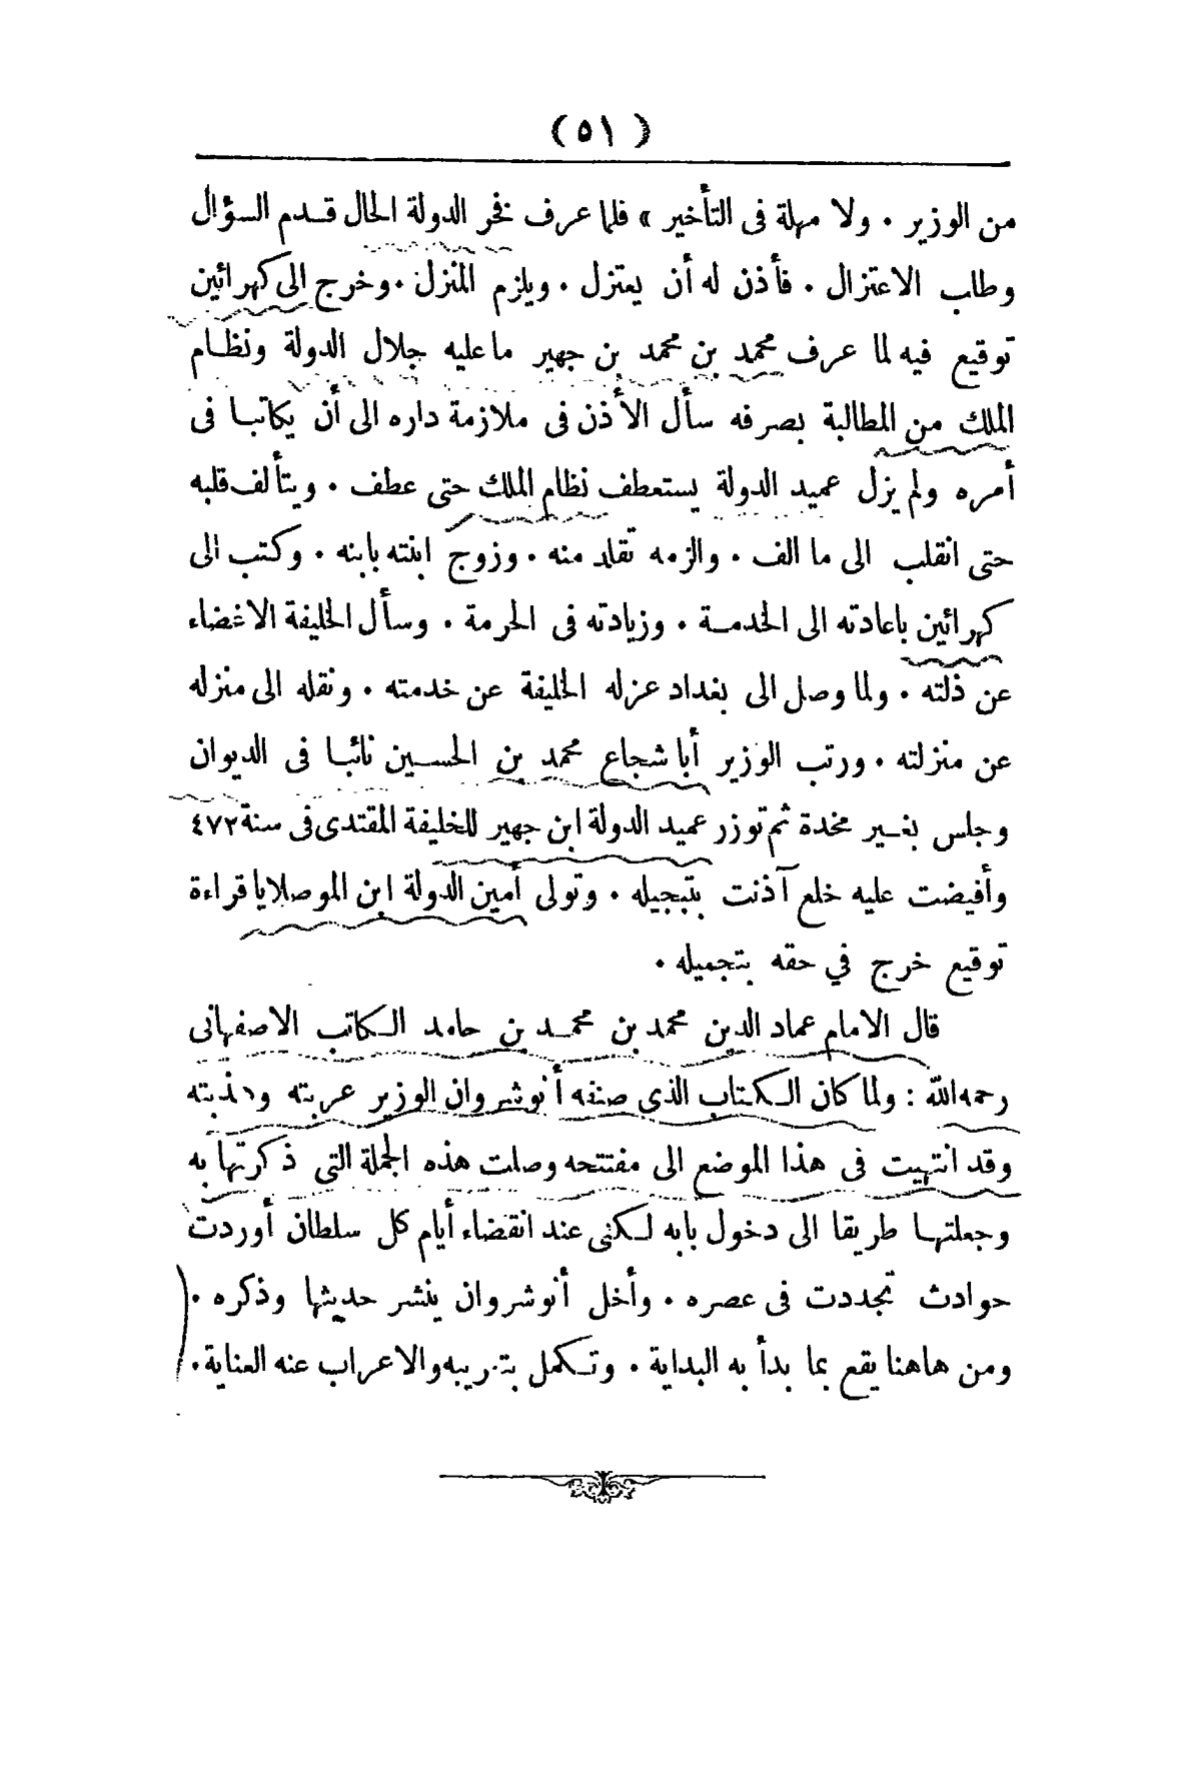 ( ٥١ )
من الوزير . ولا مهلة فى التأخير » فلما عرف فخر الدولة الحال قدم السؤال
وطاب الاعتزال . فأذن له أن يعتزل . ويلزم المنزل . وخرج الى كهرائين
توقيع فيه لما عرف محمد بن محمد بن جهير ما عليه جلال الدولة ونظام
الملك من المطالبة بصرفه سأل الأذن فى ملازمة داره الى أن يكاتبا فى
أمره ولم يزل عميد الدولة يستعطف نظام الملك حتى عطف . ويتألف قلبه
حتى انقلب الى ما الف . والزمه تقلد منه . وزوج ابنته بابنه . وكتب الى
كهرائين باعادته الى الخدمة . وزيادته فى الحرمة . وسأل الخليفة الاغضاء
عن ذلته . ولما وصل الى بغداد عزله الخليفة عن خدمته . ونقله الى منزله
عن منزلته . ورتب الوزير أبا شجاع محمد بن الحسين نائبا فى الديوان
وجلس بغير مخدة ثم توزر عميد الدولة ابن جهير للخليفة المقتدى فى سنة ٤٧٢
وأفيضت عليه خلع آذنت بتبجيله . وتولى أمين الدولة ابن الموصلايا قراءة
توقيع خرج في حقه بتجميله .
قال الامام عماد الدين محمد بن محمد بن حامد الكاتب الاصفهانى
رحمه الله : ولما كان الكتاب الذى صنفه أنوشروان الوزير عربته وهذبته
وقد انتهيت فى هذا الموضع الى مفتتحه وصلت هذه الجملة التى ذكرتها به
وجعلتها طريقا الى دخول بابه لكنى عند انقضاء أيام كل سلطان أوردت
حوادث تجددت فى عصره . وأخل أنوشروان بنشر حديثها وذكره .
ومن هاهنا يقع بما بدأ به البداية . وتكمل بتعريبه والاعراب عنه العناية .